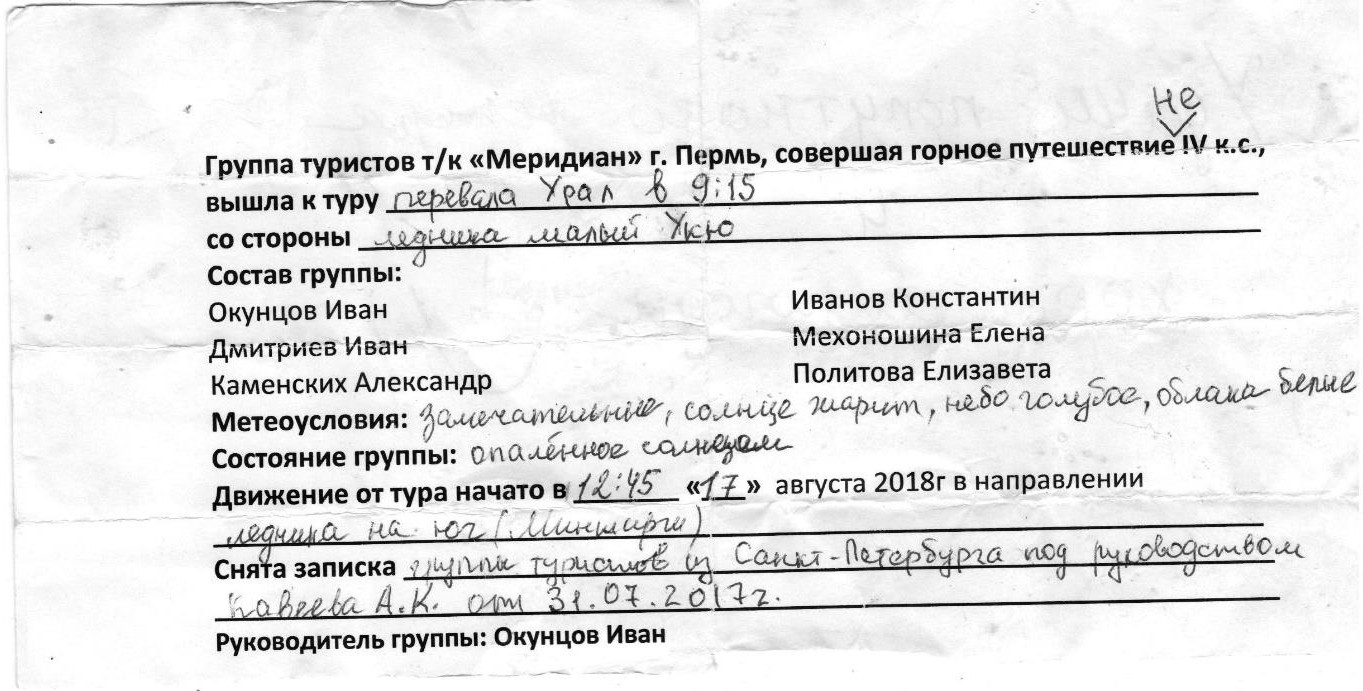 не
Группа туристов т/к «Меридиан» г. Пермь, совершая горное путешествие IV к.с.,
вышла к туру перевала Урал в 9:15
со стороны ледника малый Укю
Состав группы:
Окунцов Иван Иванов Константин
Дмитриев Иван Мехоношина Елена
Каменских Александр Политова Елизавета
Метеоусловия: Замечательные, солнце жарит, небо голубое, облака белые
Состояние группы: опалённое солнцем
Движение от тура начато в 12:45 «17» августа 2018г в направлении
ледника на юг (Мижирги)
Снята записка группы туристов из Санкт-Петербурга под руководством
Кавеева А.К. от 31.07.2017г.
Руководитель группы: Окунцов Иван